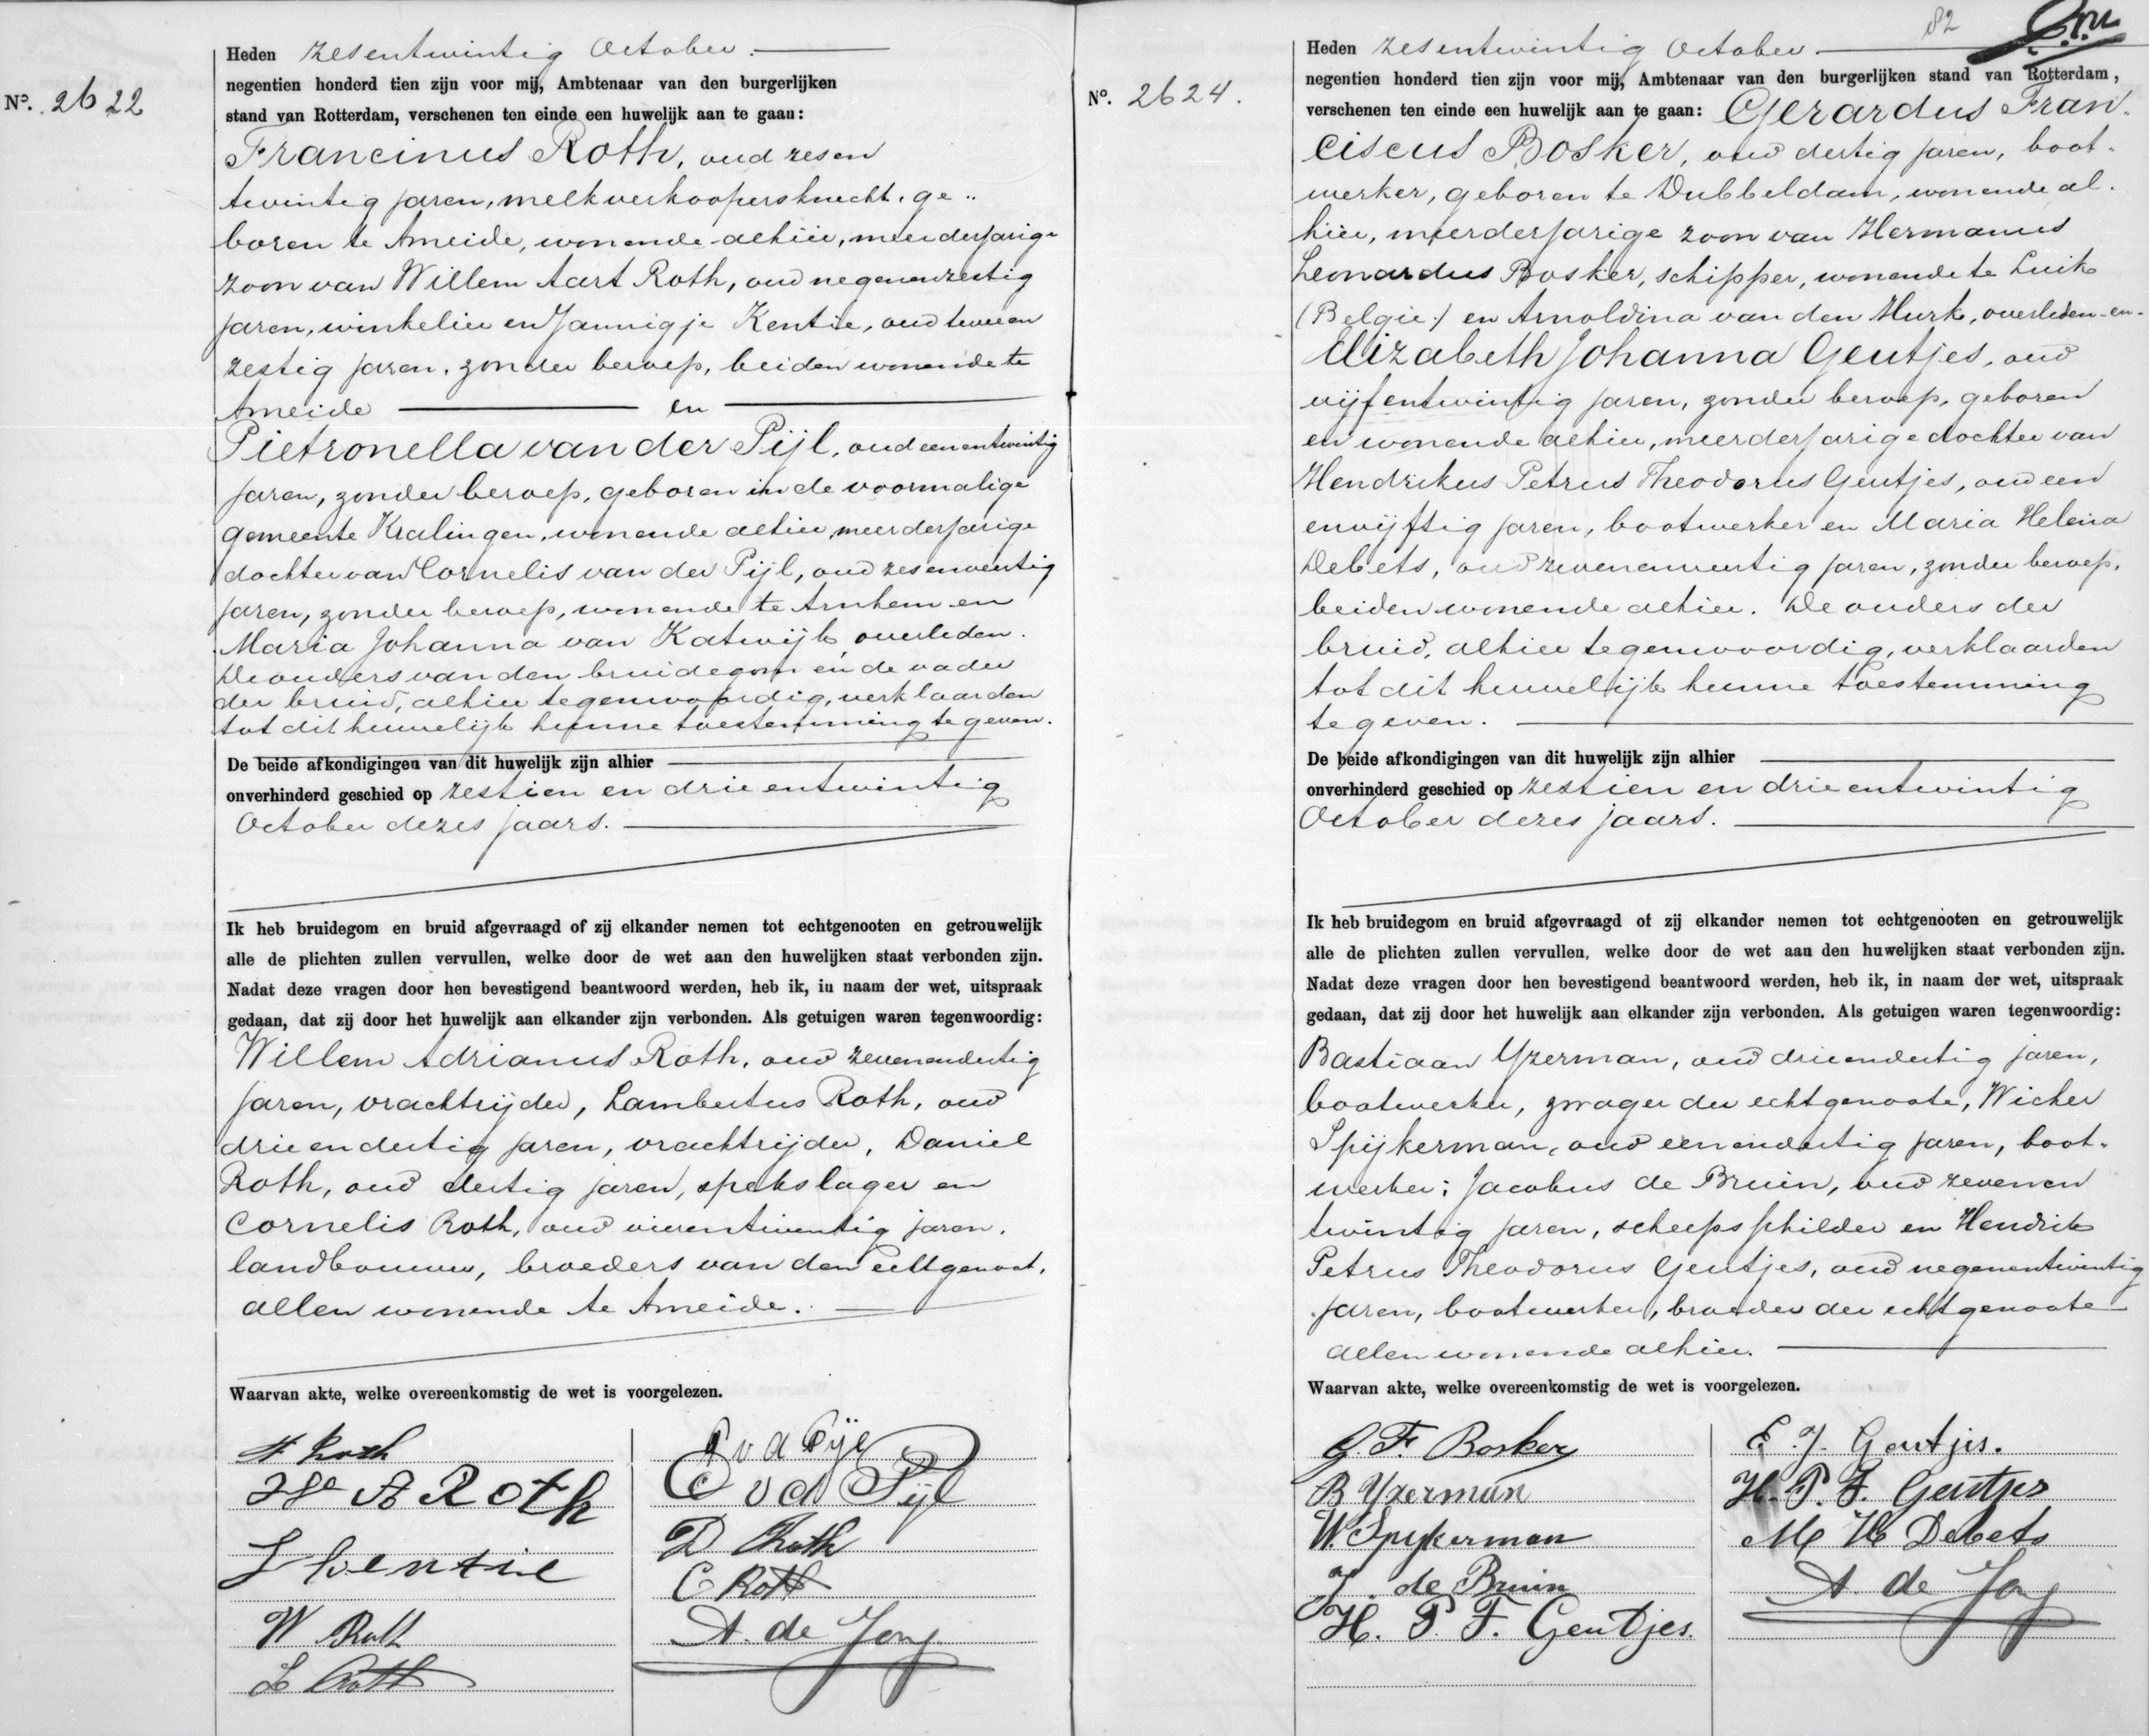 Nº. 2622
Heden zesentwintig October.
negentien honderd tien zijn voor mij, Ambtenaar van den burgerlijken
stand van Rotterdam, verschenen ten einde een huwelijk aan te gaan:
Francinus Roth, oud zesen
twintig jaren, melkverkoopersknecht, ge-
boren te Ameide, wonende alhier, meerderjarige
zoon van Willem Aart Roth, oud negenenzestig
jaren, winkelier en Jannigje Kentie, oud tweeen
zestig jaren, zonder beroep, beiden wonende te
Ameide en
Pietronella van der Pijl, oud eenentwintig
jaren, zonder beroep, geboren in de voormalige
gemeente Kralingen, wonende alhier, meerderjarige
dochter van Cornelis van der Pijl, oud zesenveertig
jaren, zonder beroep, wonende te Arnhem en
Maria Johanna van Katwijk, overleden.
De ouders van den bruidegom en de vader
der bruid, alhier tegenwoordig, verklaarden
tot dit huwelijk hunne toestemming te geven.
De beide afkondigingen van dit huwelijk zijn alhier
onverhinderd geschied op zestien en drieentwintig
October dezes jaars.
Ik heb bruidegom en bruid afgevraagd of zij elkander nemen tot echtgenooten en getrouwelijk
alle de plichten zullen vervullen, welke door de wet aan den huwelijken staat verbonden zijn.
Nadat deze vragen door hen bevestigend beantwoord werden, heb ik, in naam der wet, uitspraak
gedaan, dat zij door het huwelijk aan elkander zijn verbonden. Als getuigen waren tegenwoordig:
Willem Adrianus Roth, oud zevenendertig
jaren, vrachtrijder, Lambertus Roth, oud
drieendertig jaren, vrachtrijder, Daniel
Roth, oud dertig jaren, spekslager en
Cornelis Roth, oud vierentwintig jaren,
landbouwer, broeders van den echtgenoot,
allen wonende te Ameide.
Waarvan akte, welke overeenkomstig de wet is voorgelezen.
F Roth
W A Roth
J Kentie
W Roth
L Roth
P v d Pijl
C v d Pijl
D Roth
C Roth
A. de Jong
82
Nº. 2624.
Heden zesentwintig October
negentien honderd tien zijn voor mij, Ambtenaar van den burgerlijken stand van Rotterdam,
verschenen ten einde een huwelijk aan te gaan: Gerardus Fran-
ciscus Bosker, oud dertig jaren, boot-
werker, geboren te Dubbeldam, wonende al-
hier, meerderjarige zoon van Hermanus
Leonardus Bosker, schipper, wonende te Luik
(Belgie) en Arnoldina van den Hurk, overleden en
Elizabeth Johanna Gentjes, oud
vijfentwintig jaren, zonder beroep, geboren
en wonende alhier, meerderjarige dochter van
Hendrikus Petrus Theodorus Gentjes, oud een
envijftig jaren, bootwerker en Maria Helena
Debets, oud zevenenveertig jaren, zonder beroep,
beiden wonende alhier. De ouders der
bruid, alhier tegenwoordig, verklaarden
tot dit huwelijk hunne toestemming
te geven.
De beide afkondigingen van dit huwelijk zijn alhier
onverhinderd geschied op zestien en drieentwintig
October dezes jaars.
Ik heb bruidegom en bruid afgevraagd of zij elkander nemen tot echtgenooten en getrouwelijk
alle de plichten zullen vervullen, welke door de wet aan den huwelijken staat verbonden zijn.
Nadat deze vragen door hen bevestigend beantwoord werden, heb ik, in naam der wet, uitspraak
gedaan, dat zij door het huwelijk aan elkander zijn verbonden. Als getuigen waren tegenwoordig:
Bastiaan Yzerman, oud drieendertig jaren,
bootwerker, zwager der echtgenoote, Wicher
Spijkerman, oud eenendertig jaren, boot-
werker; Jacobus de Bruin, oud zevenen
twintig jaren, scheepsschilder en Hendrik
Petrus Theodorus Gentjes, oud negenentwintig
jaren, bootwerker, broeder der echtgenoote
allen wonende alhier.
Waarvan akte, welke overeenkomstig de wet is voorgelezen.
G. F. Bosker
B Yzerman
W. Spykerman
J. de Bruin
H. P. F. Gentjes.
E. J. Gentjes.
H. P. F. Gentjes
M H Debets
A. de Jong